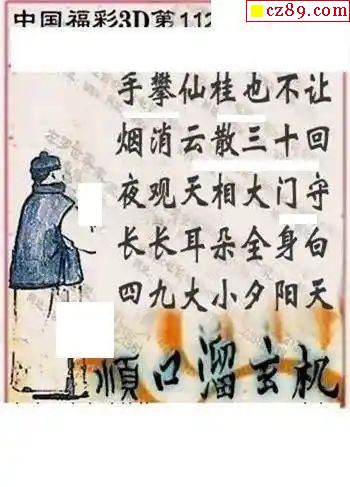 cz89.com
中国福彩3D第112
手攀仙桂也不让
烟消云散三十回
夜观天相大门守
长长耳朵全身白
四九大小夕阳天
顺口溜玄机